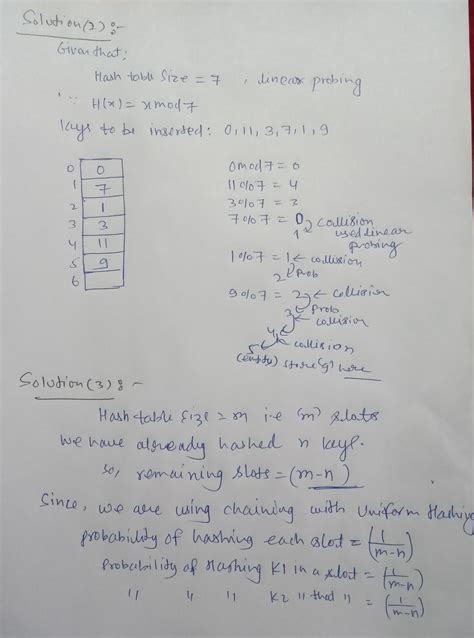 Solution(2):-
Given that;
Hash table size = 7 , linear probing
∵ H(x) = x mod 7
Keys to be inserted: 0, 11, 3, 7, 1, 9
0 0
1 7
2 1
3 3
4 11
5 9
6
0 mod 7 = 0
11%7 = 4
3%7 = 3
7%7 = 0 collision
1 used linear
probing
1%7 = 1 ← collision
2 Prob
9%7 = 2 ← collision
3 Prob
← collision
4 ← collision
5
(empty) store '9' here
Solution(3):-
Hash table size = m i.e (m) slots
We have already hashed n keys.
so, remaining slots = (m-n)
Since, we are using chaining with Uniform Hashing
probability of hashing each slot = (1/m-n)
Probability of Hashing K1 in a slot = (1/m-n)
" " " K2 " that " = (1/m-n)